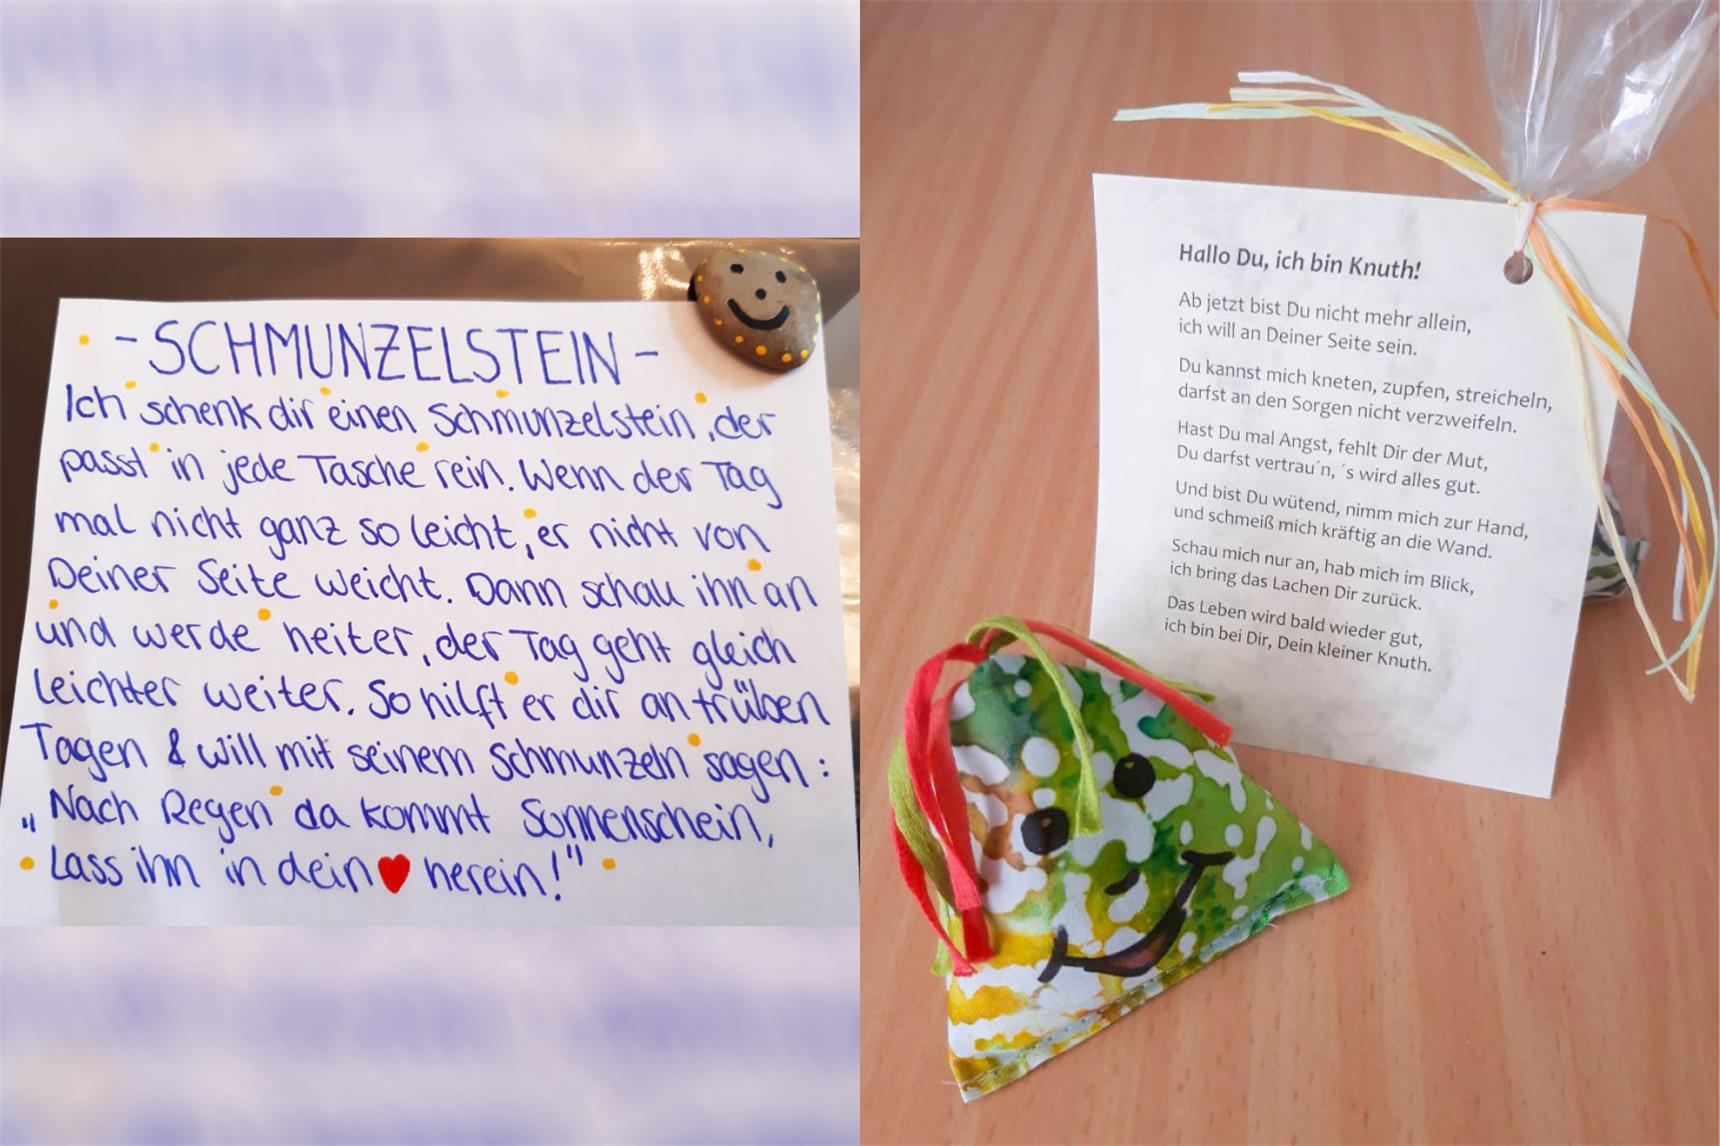 - SCHMUNZELSTEIN -
Ich schenk dir einen Schmunzelstein, der
passt in jede Tasche rein. Wenn der Tag
mal nicht ganz so leicht, er nicht von
Deiner Seite weicht. Dann schau ihn an
und werde heiter, der Tag geht gleich
leichter weiter. So hilft er dir an trüben
Tagen & will mit seinem Schmunzeln sagen:
„Nach Regen da kommt Sonnenschein,
Lass ihn in dein ♥ herein!"
Hallo Du, ich bin Knuth!
Ab jetzt bist Du nicht mehr allein,
ich will an Deiner Seite sein.
Du kannst mich kneten, zupfen, streicheln,
darfst an den Sorgen nicht verzweifeln.
Hast Du mal Angst, fehlt Dir der Mut,
Du darfst vertrau´n, ´s wird alles gut.
Und bist Du wütend, nimm mich zur Hand,
und schmeiß mich kräftig an die Wand.
Schau mich nur an, hab mich im Blick,
ich bring das Lachen Dir zurück.
Das Leben wird bald wieder gut,
ich bin bei Dir, Dein kleiner Knuth.